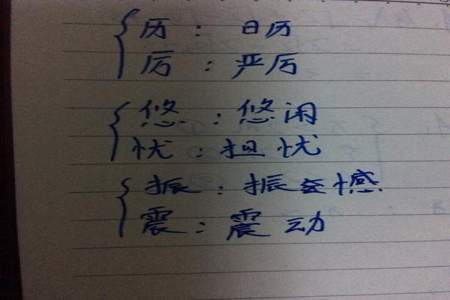 历：日历
厉：严厉
悠：悠闲
忧：担忧
振：振奋憾
震：震动